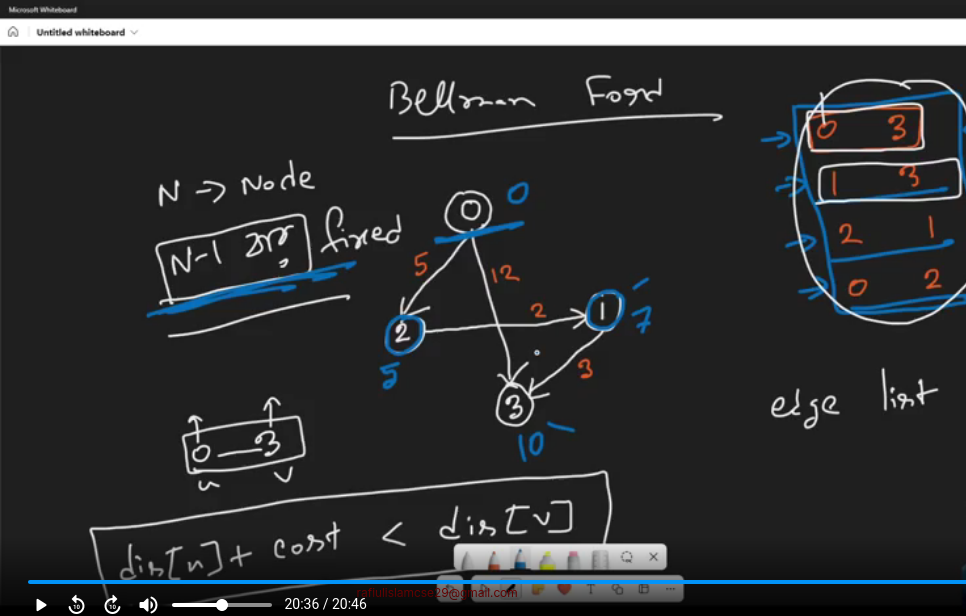 Microsoft Whiteboard
Untitled whiteboard
Bellman Ford
N -> Node
N-1 বার fixed
0 0
5
12
2
2
1
7
5
3
3
10
0 3
1 3
2 1
0 2
edge list
0 3
u v
dis[u] + cost < dis[v]
rafiulislamcse29@gmail.com
10 10
20:36 / 20:46